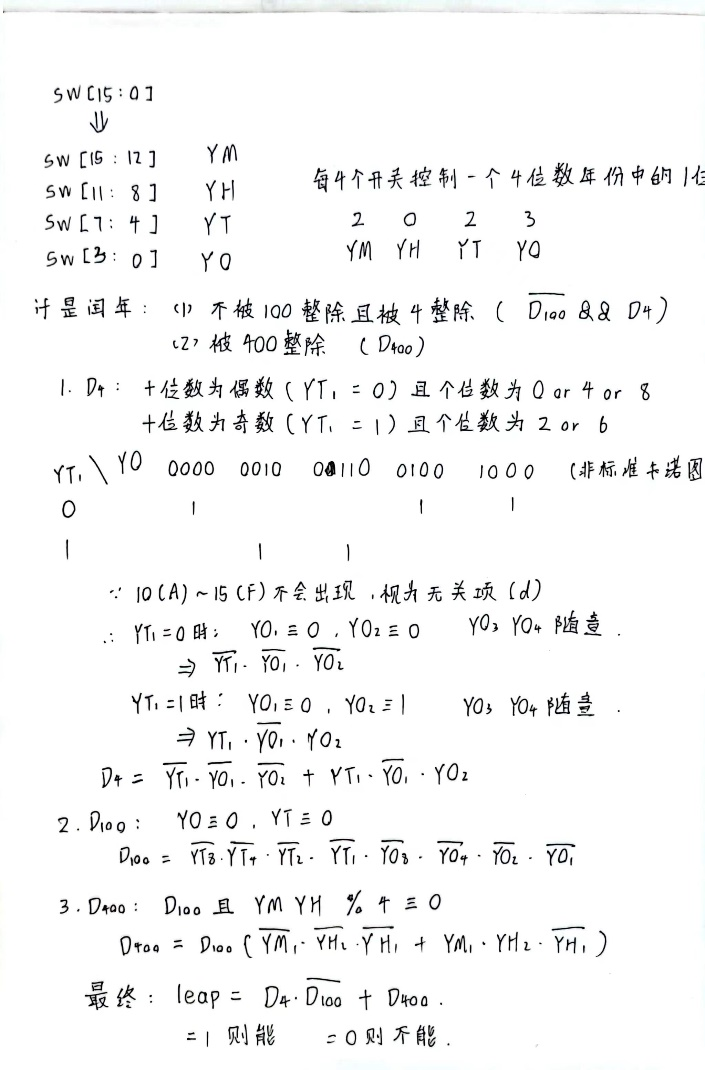 SW[15:0]
⇓
SW [15 : 12] YM
SW [11: 8] YH
每4个开关控制一个4位数年份中的1位
SW [7: 4] YT
2 0 2 3
SW [3: 0] YO
YM YH YT YO
计是闰年: (1) 不被100整除且被4整除 ( \overline{D100} && D4)
(2) 被400整除 (D400)
1. D4: 十位数为偶数(YT1 = 0) 且个位数为 0 or 4 or 8
十位数为奇数(YT1 = 1) 且个位数为 2 or 6
YT1 \ YO 0000 0010 0110 0100 1000 (非标准卡诺图
0 1 1 1
1 1 1
∵ 10(A)~15(F)不会出现,视为无关项(d)
∴ YT1=0时: YO1≡0, YO2≡0 YO3 YO4 随意.
⇒ \overline{YT1}·\overline{YO1}·\overline{YO2}
YT1=1时: YO1≡0, YO2≡1 YO3 YO4 随意.
⇒ YT1·\overline{YO1}·YO2
D4 = \overline{YT1}·\overline{YO1}·\overline{YO2} + YT1·\overline{YO1}·YO2
2. D100: YO≡0, YT≡0
D100 = \overline{YT3}·\overline{YT4}·\overline{YT2}·\overline{YT1}·\overline{YO3}·\overline{YO4}·\overline{YO2}·\overline{YO1}
3. D400: D100 且 YM YH % 4 ≡ 0
D400 = D100 (\overline{YM1}·\overline{YH2}·\overline{YH1} + YM1·YH2·\overline{YH1})
最终: leap = D4·\overline{D100} + D400.
=1 则能 =0则不能.